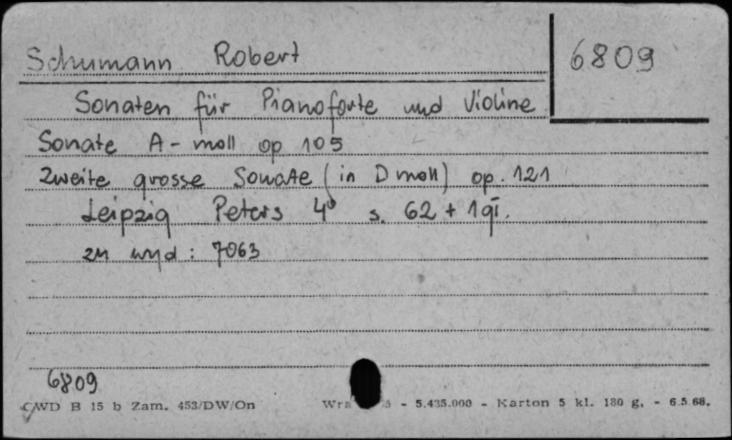 Schumann Robert
6809
Sonaten für Pianoforte und Violine
Sonate A-moll op 105
Zweite grosse Sonate (in D moll) op. 121
Leipzig Peters 4° s. 62 + 1 gł.
zn wyd : 7063
6809
CWD B 15 b Zam. 453/DW/On - 5.435.000 - Karton 5 kl. 180 g. - 6.5.68.